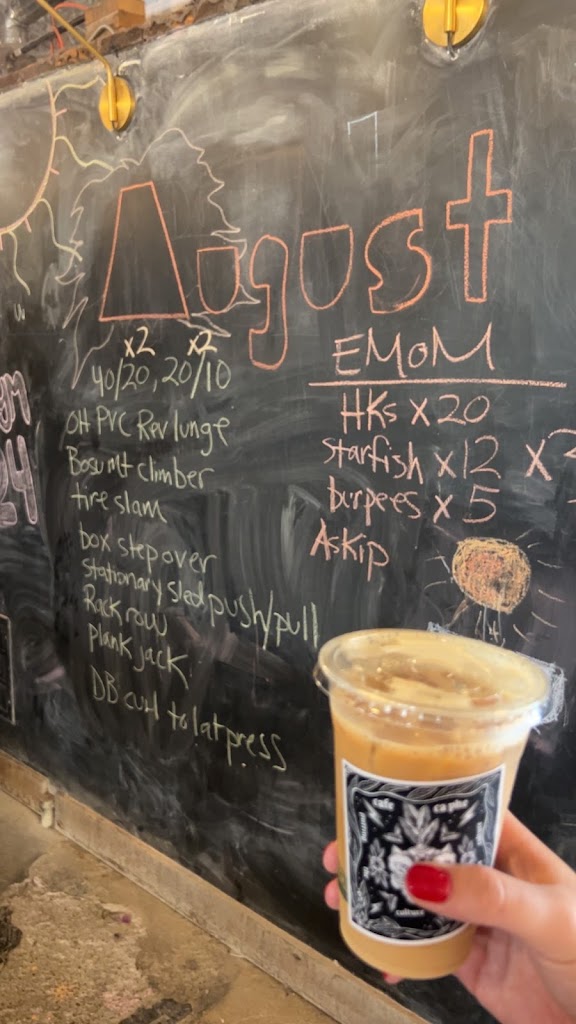 August
x2 x2
40/20, 20/10
OH PVC Rev lunge
Bosu mt climber
tire slam
box step over
stationary sled push/pull
Rack row
plank jack
DB curl to lat press
EMoM
HKs x 20
starfish x 12
burpees x 5
A skip
24
cafe ca phe
culture